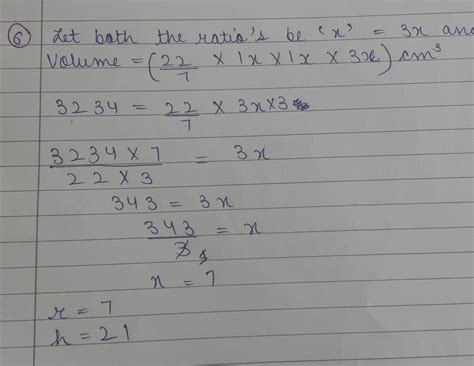 ⑥ Let both the ratio's be 'x' = 3x and
Volume = (22/7 × 1x × 1x × 3x) cm³
3234 = 22/7 × 3x × 3
3234 × 7 / 22 × 3 = 3x
343 = 3x
343 / 3 = x
x = 7
r = 7
h = 21